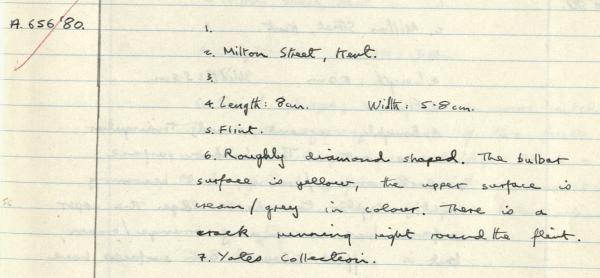 A.656'80.
1.
2. Milton Street, Kent.
3.
4. Length: 8cm. Width: 5.8cm.
5. Flint.
6. Roughly diamond shaped. The bulbar
surface is yellow, the upper surface is
cream/grey in colour. There is a
crack running right round the flint.
7. Yates Collection.